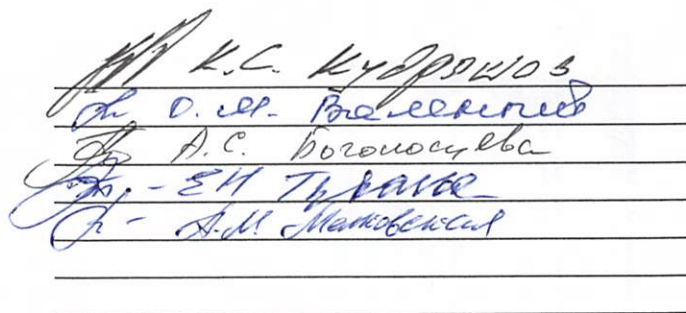 К.С. Кудряшов
О.М. Валентий
А.С. Богоносцева
Е.Н.
А.М. Маковская